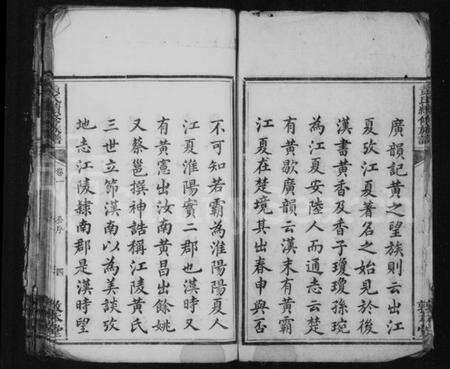 廣韻記黃之望族則云出江
夏攷江夏著名之始見於後
漢書黃香及香子瓊瓊孫琬
為江夏安陸人而通志云楚
有黃歇廣韻云漢末有黃霸
江夏在楚境其出春申與否
不可知若霸為淮陽陽夏人
江夏淮陽實二郡也漢時又
有黃憲出汝南黃昌出餘姚
又蔡邕撰神誥稱江陵黃氏
三世立節漢南以為美談攷
地志江陵隸南郡是漢時望
卷一
四